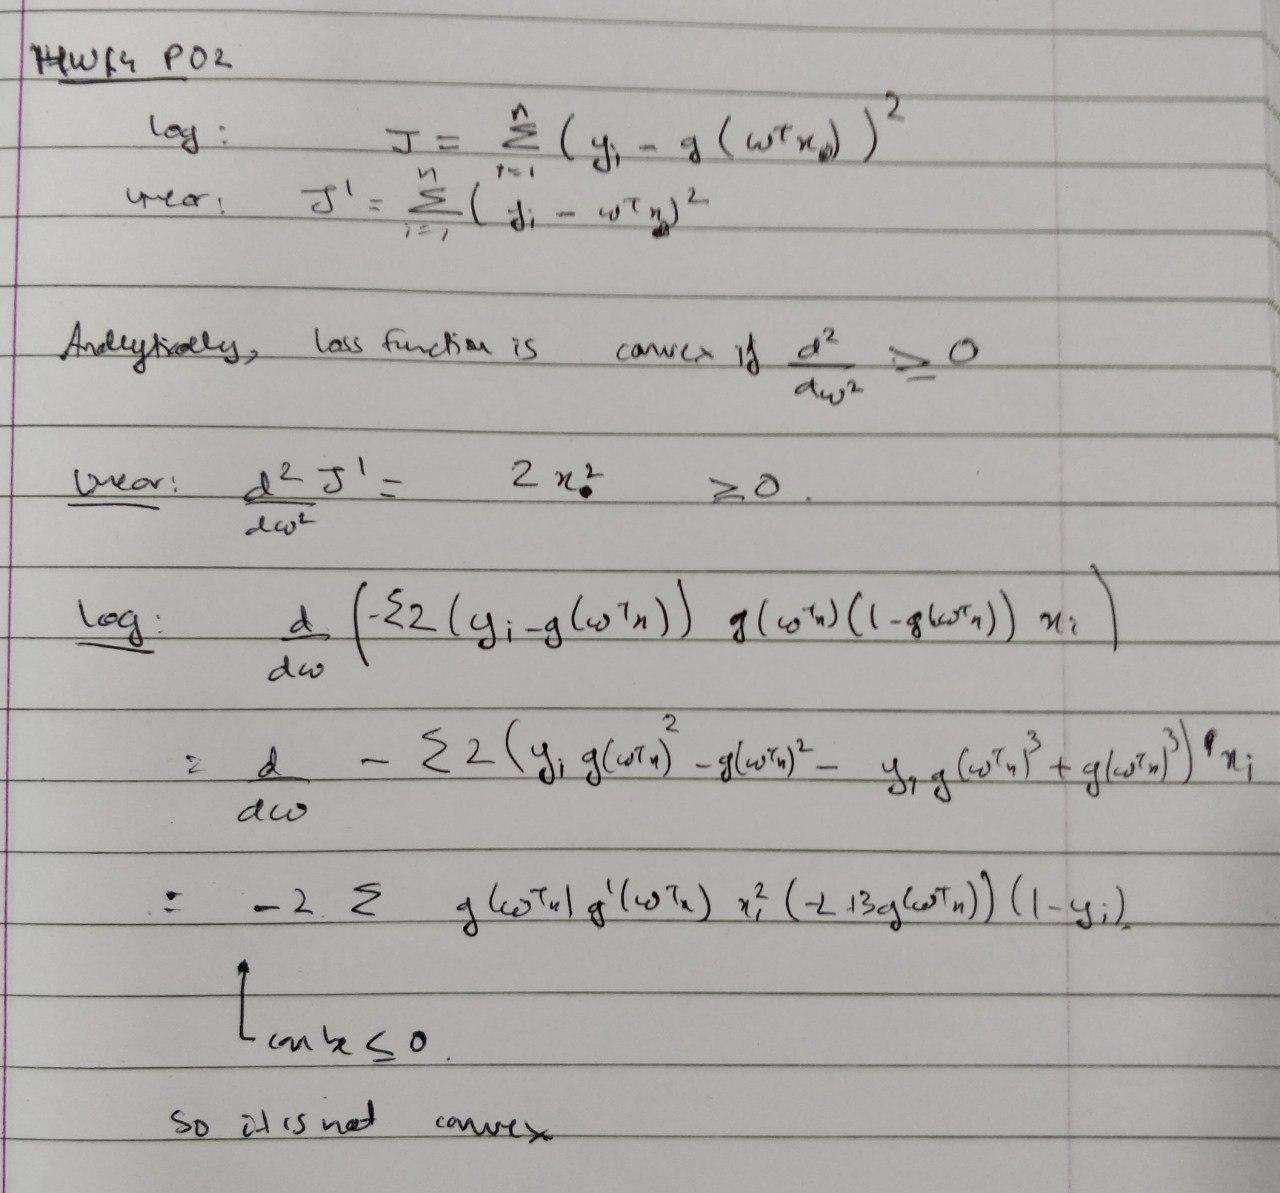 HW14 P02
log: J = Σ_{i=1}^{n} (y_i - g(ω^T x))^2
linear: J' = Σ_{i=1}^{n} (y_i - ω^T x)^2
Analytically, loss function is convex if d^2/dω^2 ≥ 0
Linear: d^2 J'/dω^2 = 2x^2 ≥ 0.
Log: d/dω (-Σ2(y_i - g(ω^T x)) g(ω^T x)(1-g(ω^T x)) x_i)
= d/dω - Σ2(y_i g(ω^T x)^2 - g(ω^T x)^2 - y_i g(ω^T x)^3 + g(ω^T x)^3) x_i
= -2 Σ g(ω^T x) g'(ω^T x) x_i^2 (-2+3g(ω^T x))(1-y_i)
can be ≤ 0.
So it is not convex